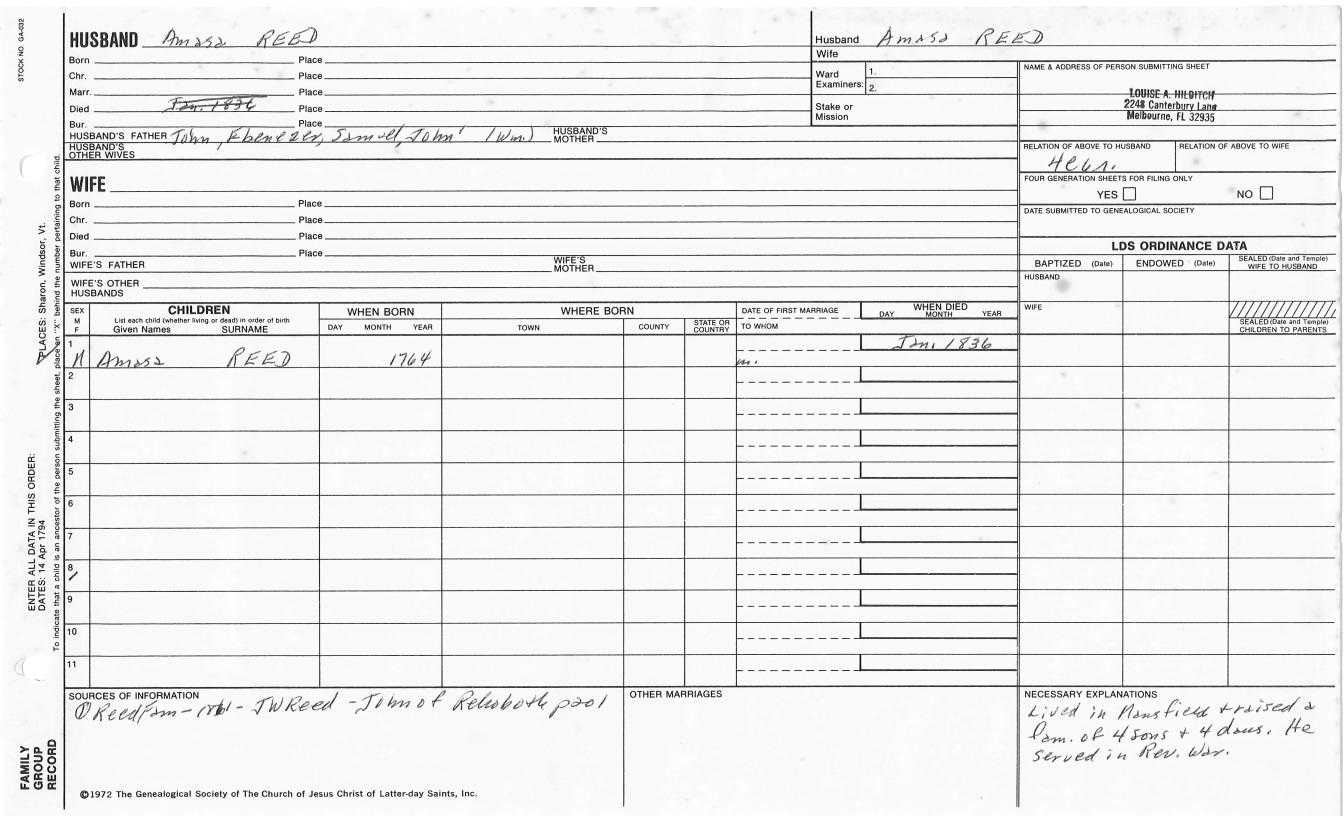 STOCK NO. GA-032
HUSBAND Amasa REED
Born Place
Chr. Place
Marr. Place
Died Jan. 1836 Place
Bur. Place
HUSBAND'S FATHER John, Ebenezer, Samuel, John' (Wm.) HUSBAND'S MOTHER
HUSBAND'S OTHER WIVES
WIFE
Born Place
Chr. Place
Died Place
Bur. Place
WIFE'S FATHER WIFE'S MOTHER
WIFE'S OTHER HUSBANDS
Husband Amasa REED
Wife
Ward Examiners: 1.
2.
Stake or Mission
NAME & ADDRESS OF PERSON SUBMITTING SHEET
LOUISE A. HILBITCH
2248 Canterbury Lane
Melbourne, FL 32935
RELATION OF ABOVE TO HUSBAND RELATION OF ABOVE TO WIFE
FOUR GENERATION SHEETS FOR FILING ONLY
YES NO
DATE SUBMITTED TO GENEALOGICAL SOCIETY
LDS ORDINANCE DATA
BAPTIZED (Date) ENDOWED (Date) SEALED (Date and Temple) WIFE TO HUSBAND
HUSBAND
WIFE
SEALED (Date and Temple) CHILDREN TO PARENTS
SEX M F
CHILDREN
List each child (whether living or dead) in order of birth
Given Names SURNAME
WHEN BORN
DAY MONTH YEAR
WHERE BORN
TOWN COUNTY STATE OR COUNTRY
DATE OF FIRST MARRIAGE
TO WHOM
WHEN DIED
DAY MONTH YEAR
1 Jan. 1836
M Amasa REED 1764 m.
2
3
4
5
6
7
8
9
10
11
SOURCES OF INFORMATION
① Reed Fam - - JW Reed - John of Rehoboth p201
OTHER MARRIAGES
NECESSARY EXPLANATIONS
Lived in Mansfield + raised a
fam. of 4 sons + 4 daus. He
served in Rev. War.
©1972 The Genealogical Society of The Church of Jesus Christ of Latter-day Saints, Inc.
FAMILY
GROUP
RECORD
ENTER ALL DATA IN THIS ORDER:
DATES: 14 Apr 1794 PLACES: Sharon, Windsor, Vt.
To indicate that a child is an ancestor of the person submitting the sheet, place an "X" behind the number pertaining to that child.